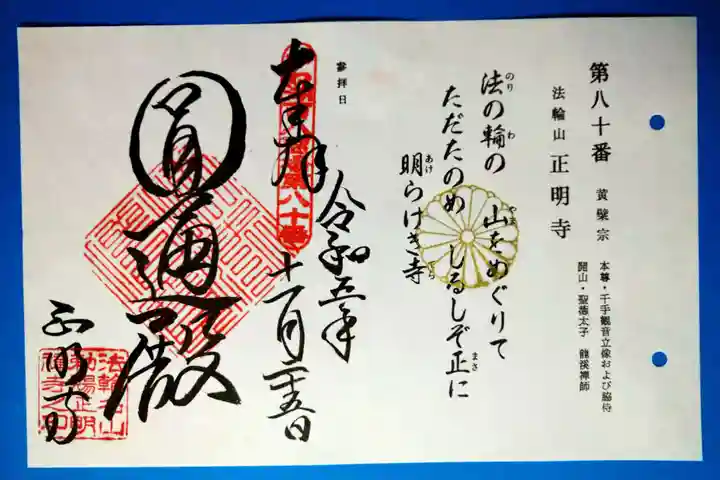 第八十番 黄檗宗
本尊・千手観音立像および脇侍
開山・聖徳太子 龍溪禅師
法輪山 正明寺
法の輪の 山をめぐりて
のり わ やま
ただたのめ しるしぞ正に
まさ
明らけき寺
あけ てら
参拝日
奉拝
令和五年
十一月二十五日
圓通殿
正明寺